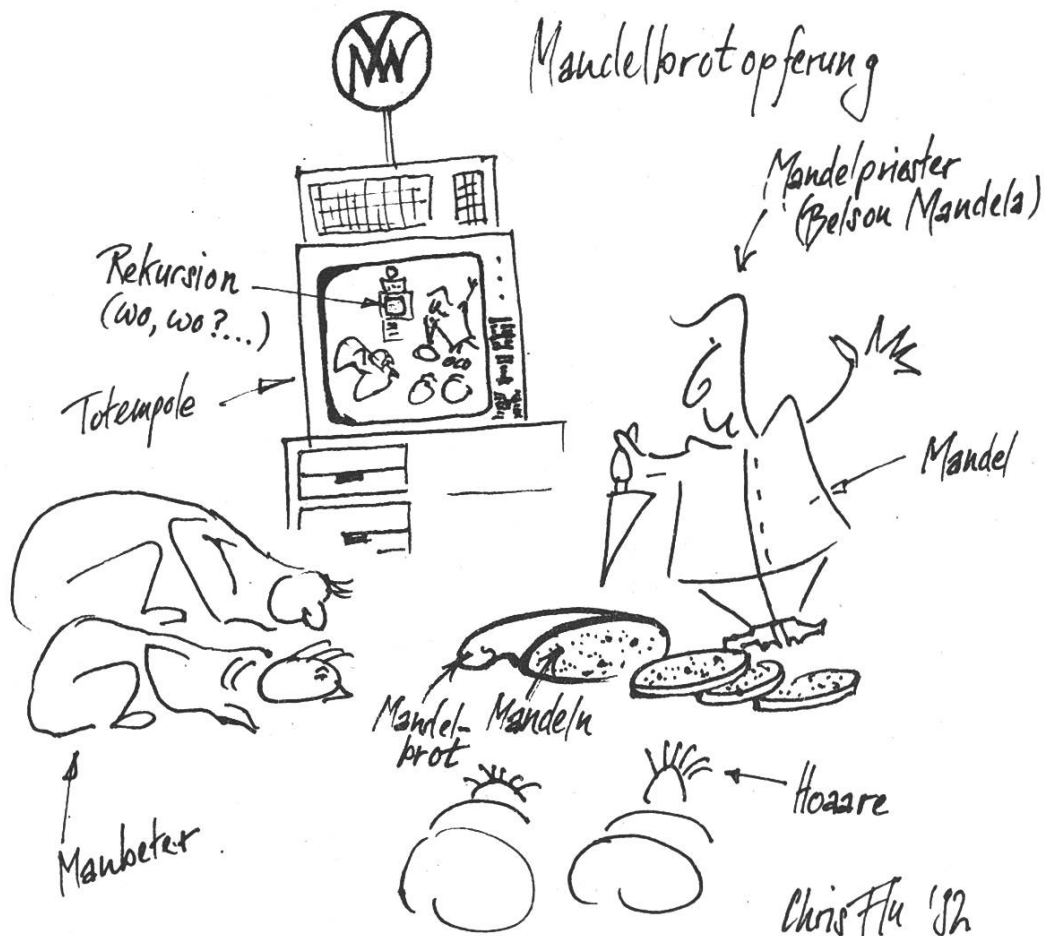 Mandelbrotopferung
Mandelpriester
(Belson Mandela)
Rekursion
(wo, wo?...)
Totempole
Mandel
Mandel-
brot
Mandeln
Hoaare
Manbeter
Chris Flu '92